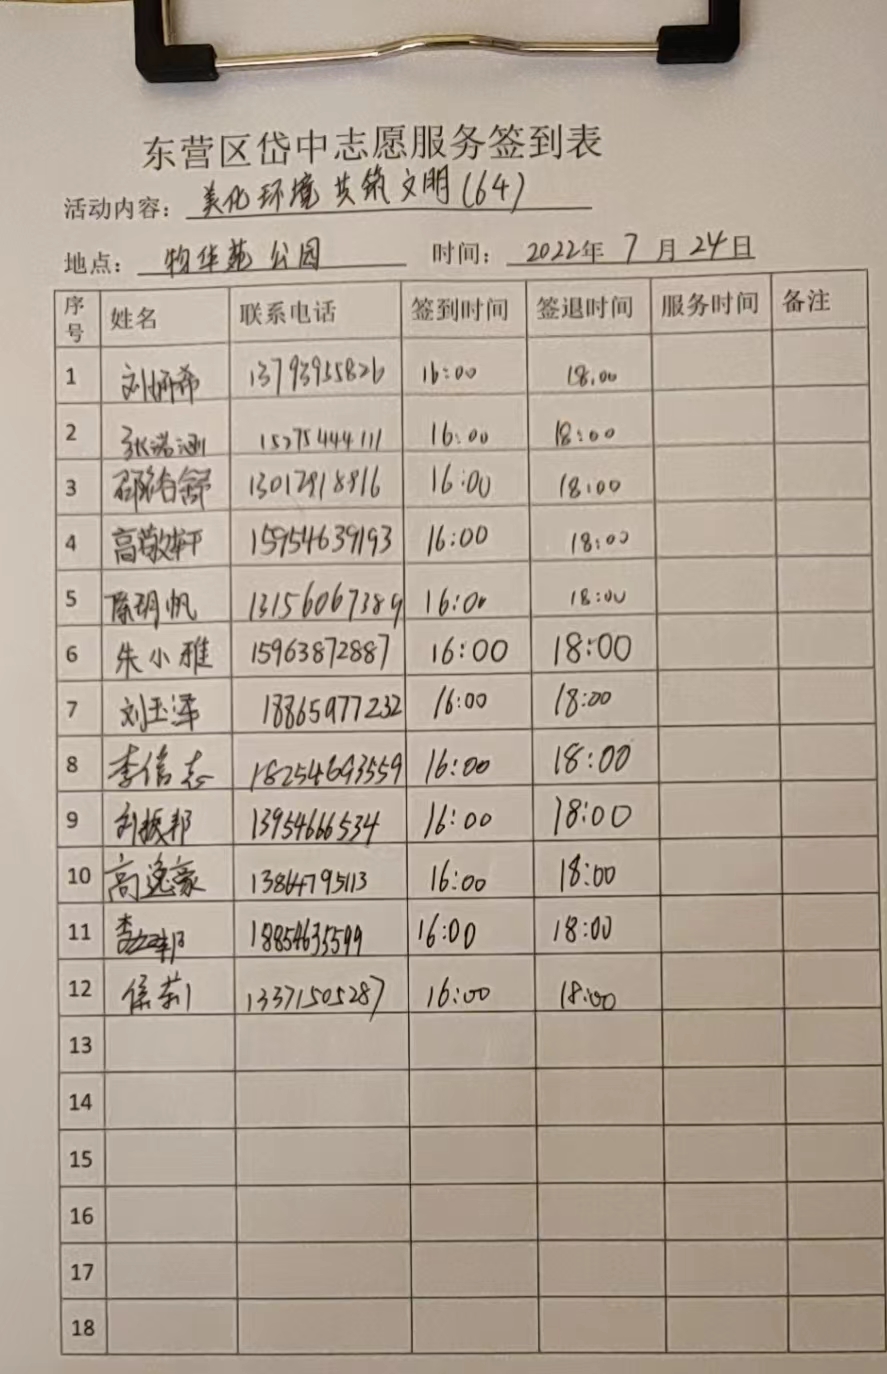 东营区岱中志愿服务签到表
活动内容：美化环境共筑文明(64)
地点：物华苑公园 时间：2022年7月24日
序号 姓名 联系电话 签到时间 签退时间 服务时间 备注
1 13793955826 16:00 18:00
2 张诺涵 15275444111 16:00 18:00
3 16:00 18:00
4 高敬轩 15954639193 16:00 18:00
5 陈玥帆 13156067389 16:00 18:00
6 朱小雅 15963872887 16:00 18:00
7 刘玉泽 18865977232 16:00 18:00
8 李信志 18254693559 16:00 18:00
9 刘振邦 13954666534 16:00 18:00
10 高逸豪 13864795113 16:00 18:00
11 18854635599 16:00 18:00
12 侯莉 13371505287 16:00 18:00
13
14
15
16
17
18